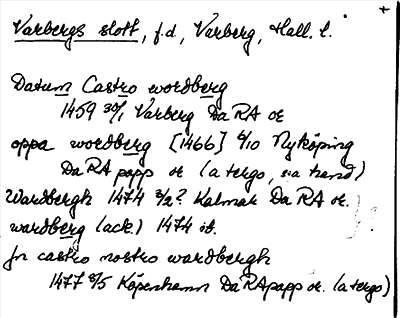 Varbergs slott, f.d., Varberg, Hall. l.
Datum Castro wordberg
1459 30/1 Varberg DaRA or
oppa wordberg [1466] 6/10 Nyköping
DaRA papp or (a tergo, sa hand)
Wardbergh 1474 3/2? Kalmar DaRA or.
wardberg (ack.) 1474 ib.
Jn castro nostro wardbergh
1477 8/5 Köpenhamn DaRApapp or. (a tergo)